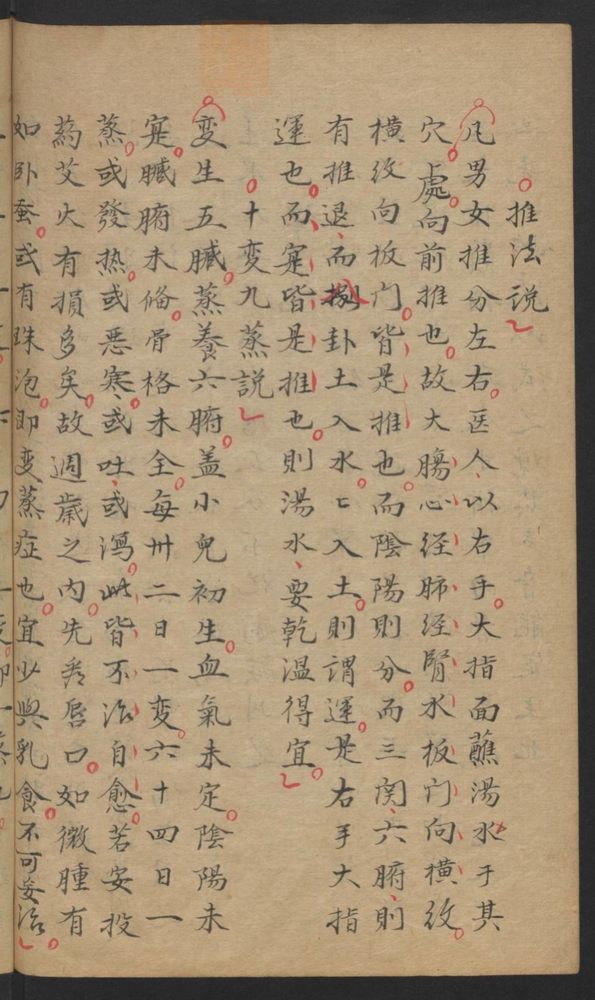 推法説
凡男女推分左右医人以右手大指面蘸湯水于其
穴處向前推也故大腸心経肺経腎水扳门向横紋
横紋向扳门皆是推也而陰陽則分而三関六腑則
有推退而卦土入水匕入土則謂運是右手大指
運也而寔皆是推也則湯水要乾温得宜
十変九蒸説
変生五臓蒸養六腑盖小兒初生血氣未定陰陽未
寔臓腑未偹骨格未全每卅二日一変六十四日一
蒸或發热或恶寒或吐或瀉此皆不治自愈若妄投
葯艾火有損多矣故週歲之内先看唇口如微腫有
如卧蚕或有珠泡即変蒸症也宜少與乳食不可妄治